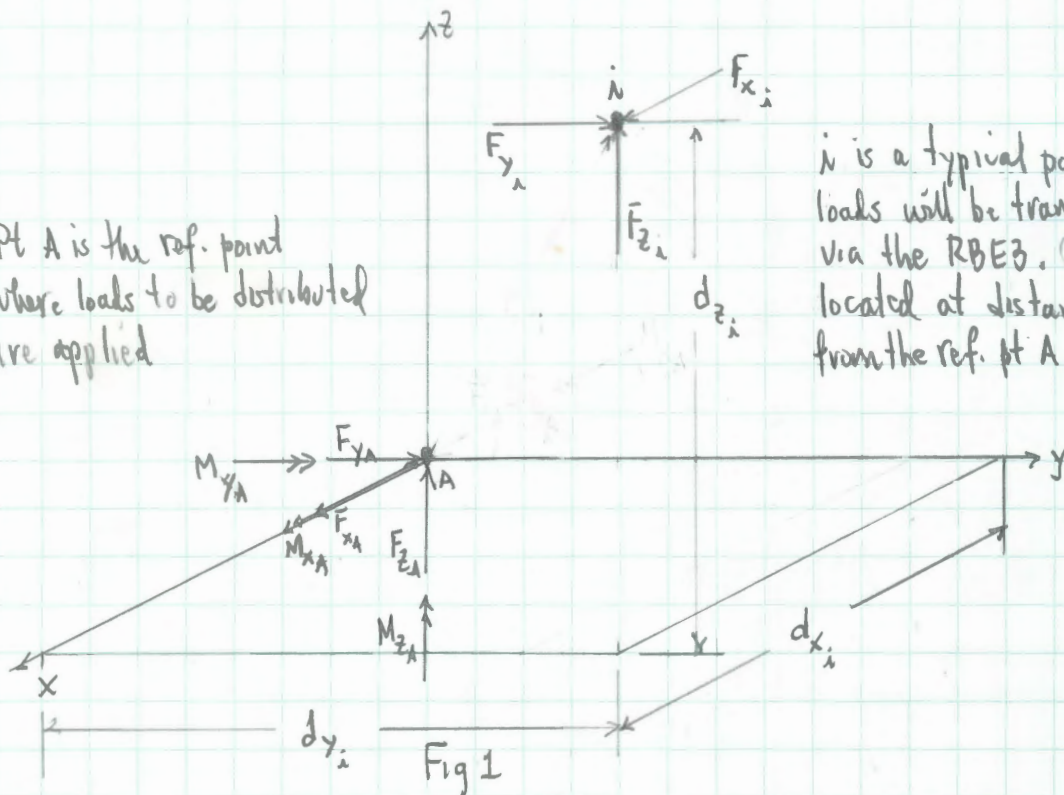 z
i
F_xi
F_yi
F_zi
d_zi
i is a typical po
loads will be tran
via the RBE3.
located at distan
from the ref. pt A
Pt A is the ref. point
where loads to be distributed
are applied
M_yA
F_yA
A
y
F_xA
M_xA
F_zA
M_zA
d_xi
x
d_yi
Fig 1